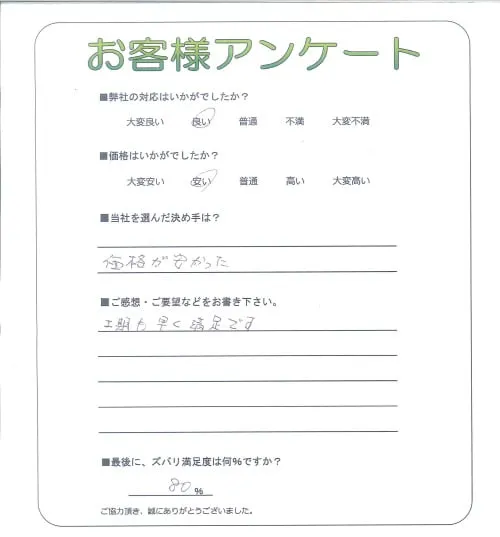 お客様アンケート
■弊社の対応はいかがでしたか？
大変良い 良い 普通 不満 大変不満
■価格はいかがでしたか？
大変安い 安い 普通 高い 大変高い
■当社を選んだ決め手は？
価格が安かった
■ご感想・ご要望などをお書き下さい。
工期も早く満足です
■最後に、ズバリ満足度は何%ですか？
80%
ご協力頂き、誠にありがとうございました。